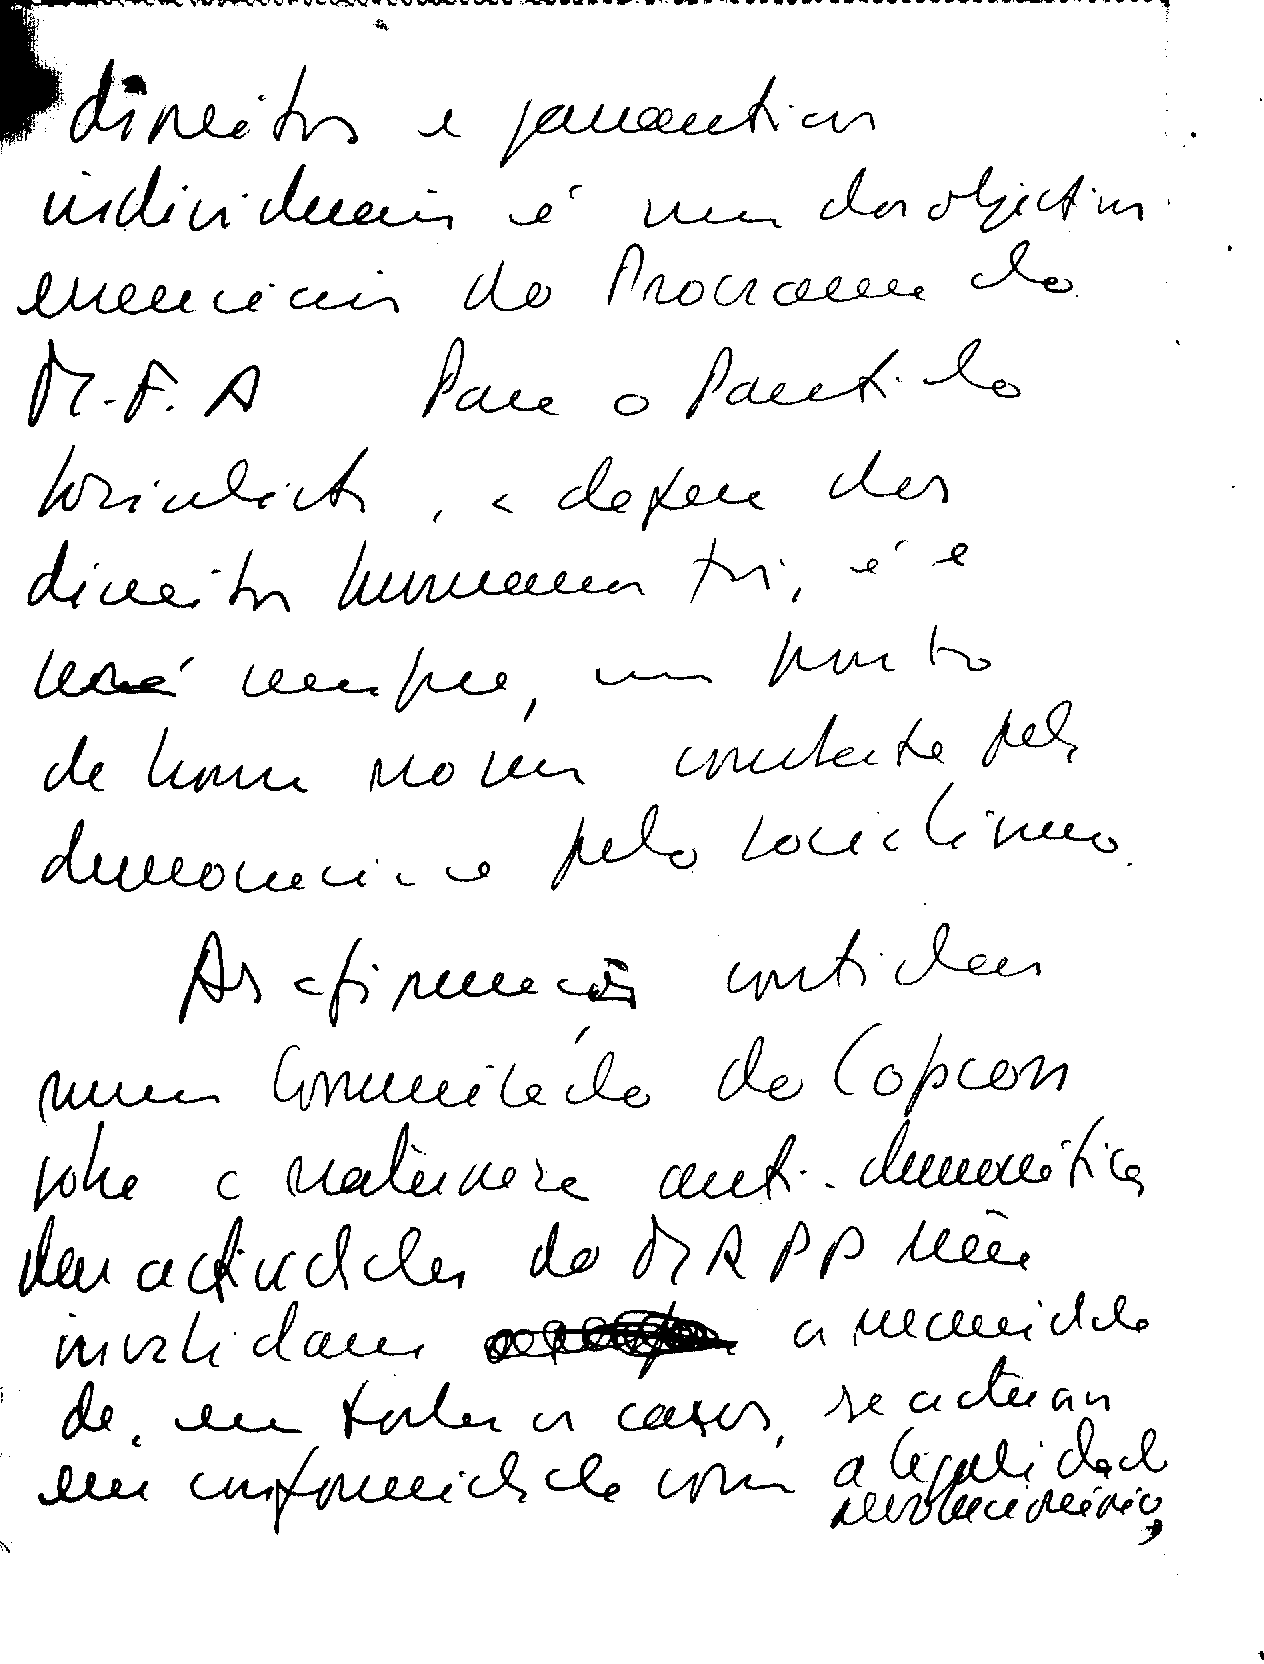 direitos e garantias
individuais é um dos objectivos
essenciais do Programa do
M.F.A Para o Partido
Socialista, a defesa dos
direitos humanos foi, é e
será sempre, um ponto
de honra no seu combate pela
democracia e pelo socialismo.
As afirmações contidas
num Comunicado do Copcon
sobre a natureza anti-democrática
das actividades do MRPP não
invalidam a necessidade
de, em todos os casos, se actuar
em conformidade com a legalidade
revolucionária,